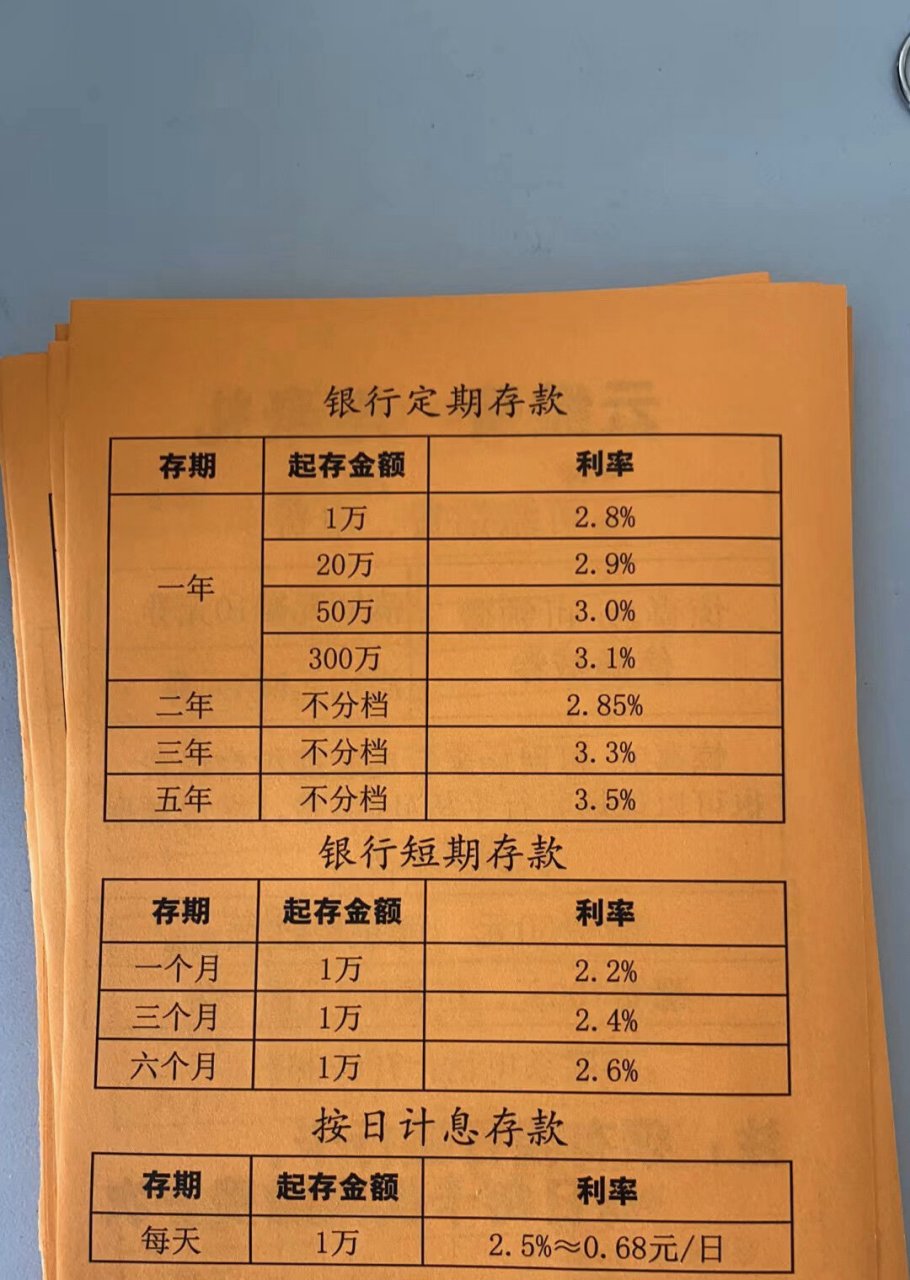 银行定期存款
存期 起存金额 利率
一年 1万 2.8%
20万 2.9%
50万 3.0%
300万 3.1%
二年 不分档 2.85%
三年 不分档 3.3%
五年 不分档 3.5%
银行短期存款
存期 起存金额 利率
一个月 1万 2.2%
三个月 1万 2.4%
六个月 1万 2.6%
按日计息存款
存期 起存金额 利率
每天 1万 2.5%≈0.68元/日